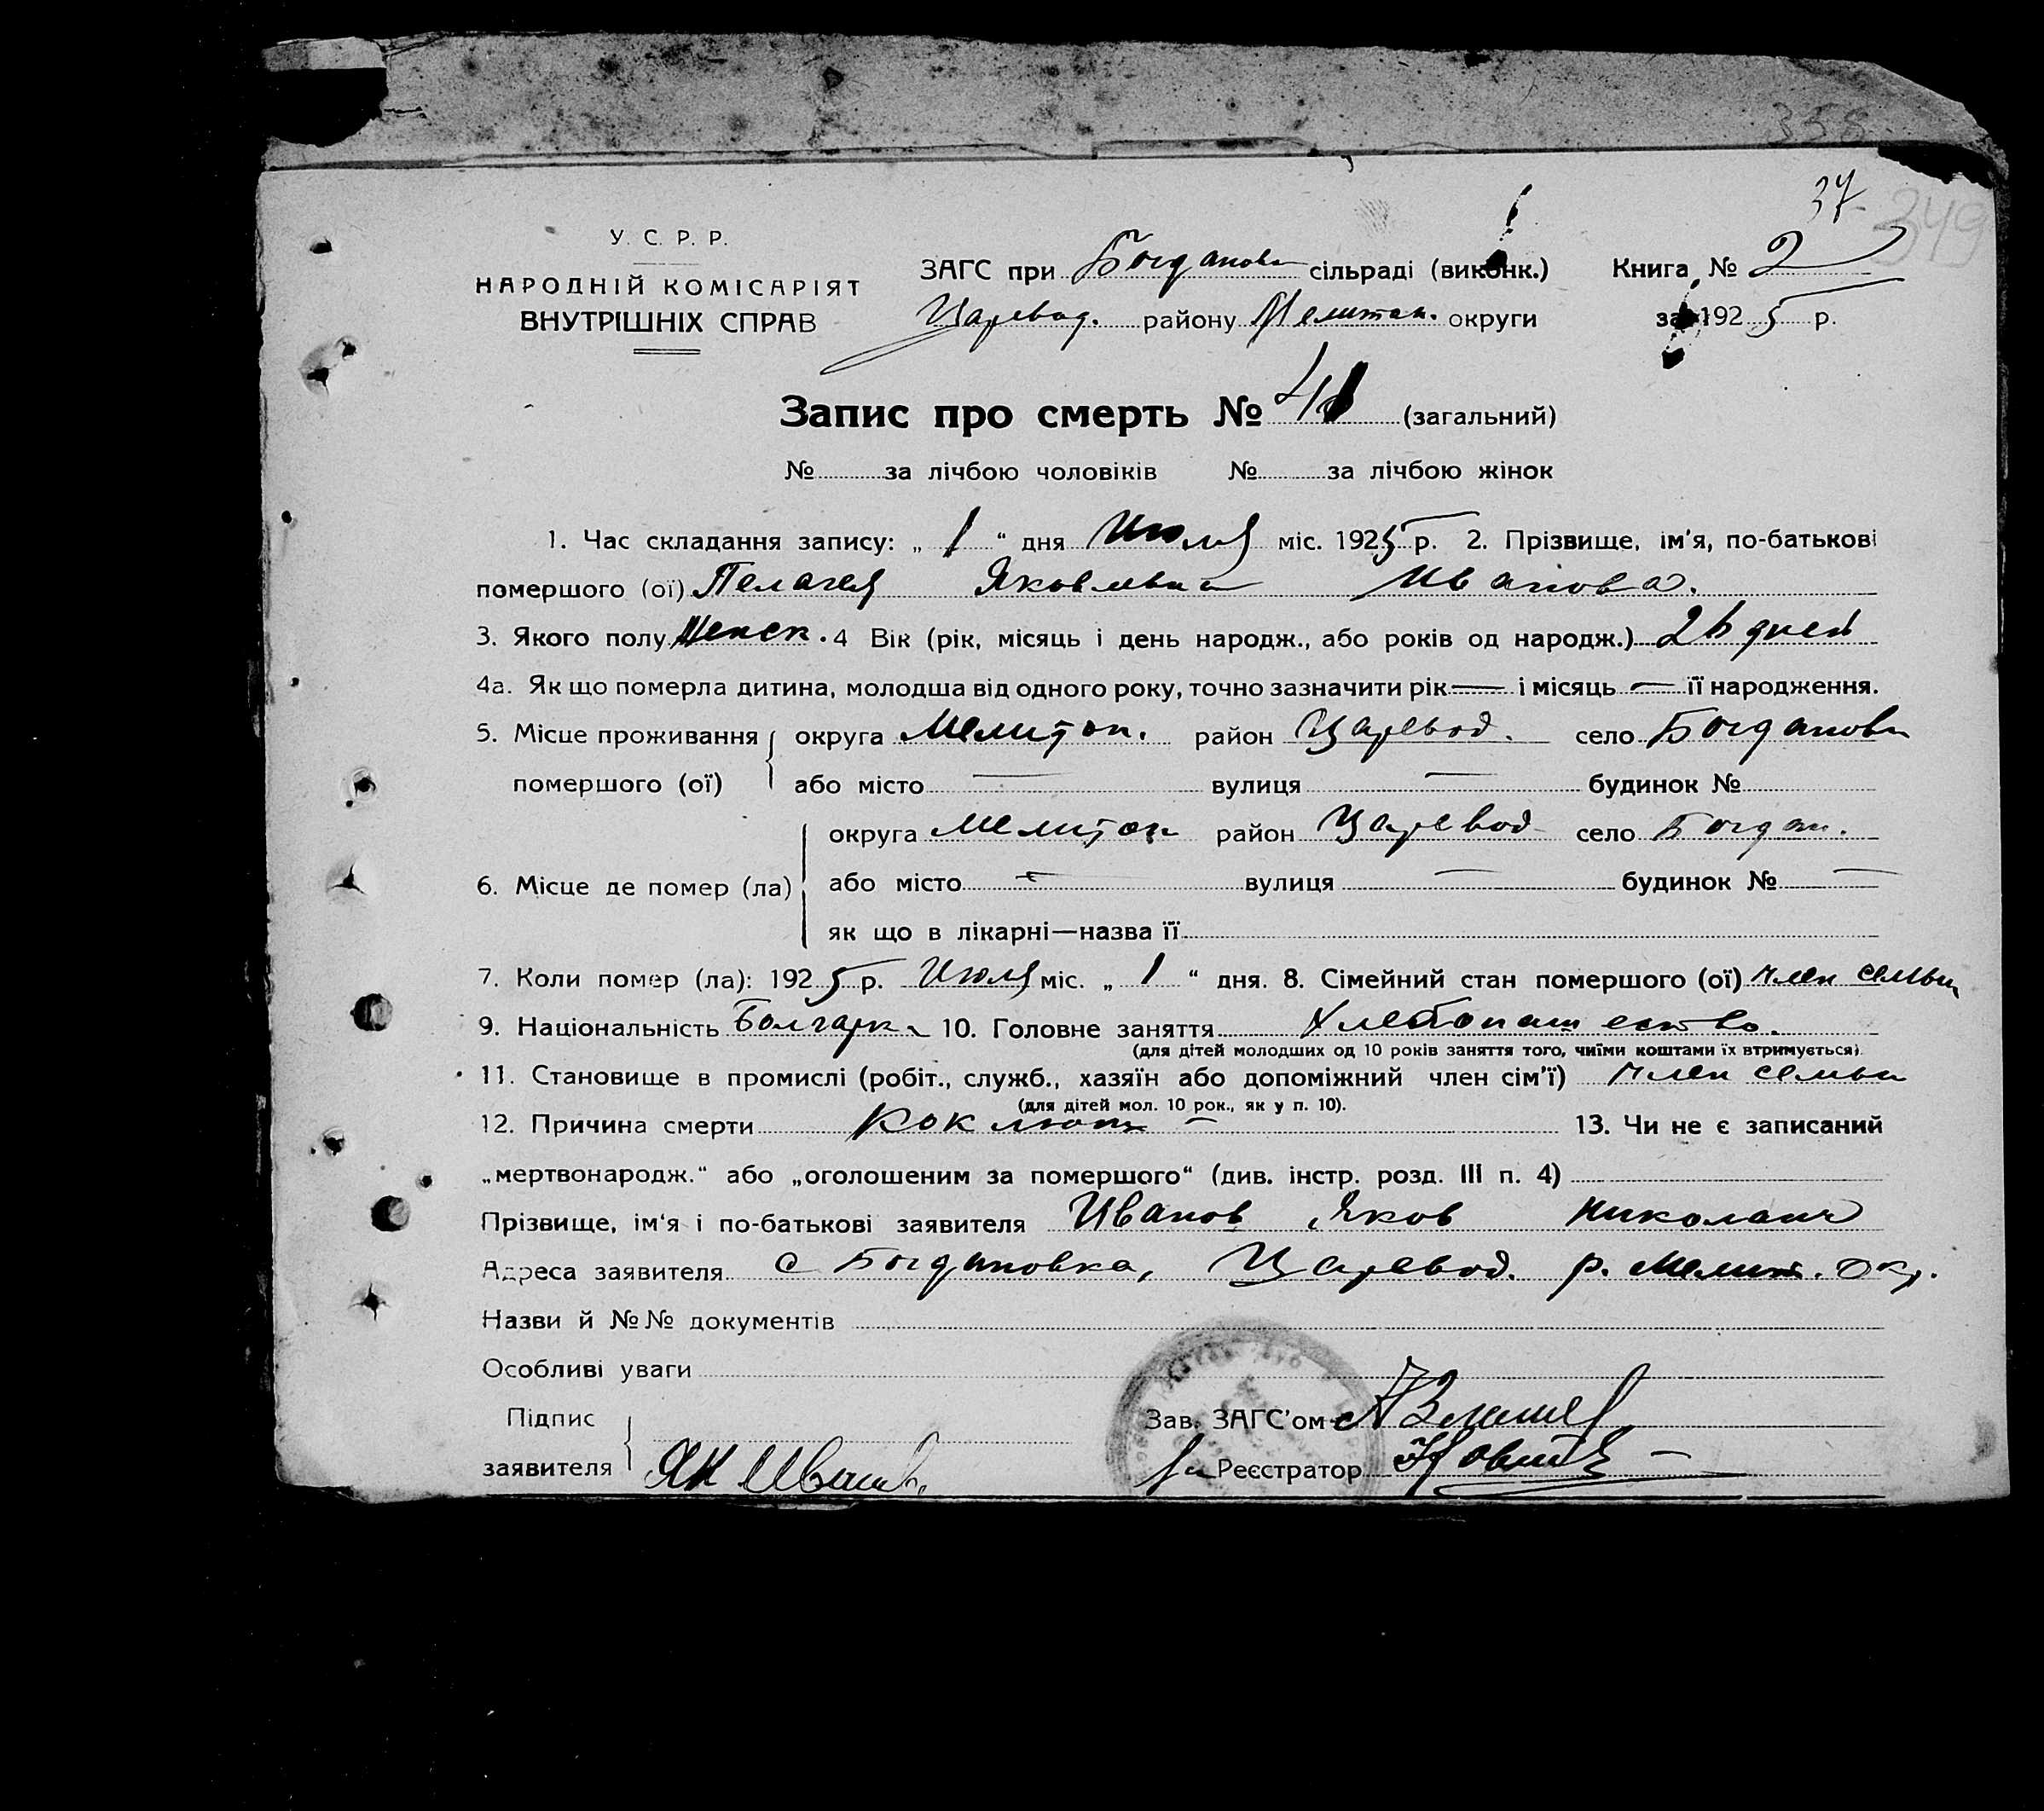 358
37
349
У. С. Р. Р.
НАРОДНІЙ КОМІСАРІЯТ
ВНУТРІШНІХ СПРАВ
ЗАГС при Богданов сільраді (виконк.) Книга № 2
Царевод. району Мелитоп. округи за 1925 р.
Запис про смерть № 41 (загальний)
№ за лічбою чоловіків № за лічбою жінок
1. Час складання запису: „ 1 “ дня Июля міс. 1925 р. 2. Прізвище, ім'я, по-батькові
помершого (ої) Пелагея Яковлевна Иванова.
3. Якого полу Женск. 4 Вік (рік, місяць і день народж., або років од народж.) 26 дней
4а. Як що померла дитина, молодша від одного року, точно зазначити рік — і місяць — її народження.
5. Місце проживання округа Мелитоп. район Царевод. село Богданов
помершого (ої) або місто — вулиця — будинок №
округа Мелитоп район Царевод село Богдан.
6. Місце де помер (ла) або місто — вулиця — будинок № —
як що в лікарні—назва її
7. Коли помер (ла): 1925 р. Июля міс. „ 1 “ дня. 8. Сімейний стан помершого (ої) член семьи
9. Національність Болгарка 10. Головне заняття Хлебопашество.
(для дітей молодших од 10 років заняття того, чиїми коштами їх втримується).
11. Становище в промислі (робіт., служб., хазяїн або допоміжний член сім'ї) член семьи
(для дітей мол. 10 рок., як у п. 10).
12. Причина смерти Коклюш — 13. Чи не є записаний
„мертвонародж.“ або „оголошеним за помершого“ (див. інстр. розд. III п. 4)
Прізвище, ім'я і по-батькові заявителя Иванов Яков Николаич
Адреса заявителя с Богдановка, Царевод. р. Мелит. Окр.
Назви й №№ документів
Особливі уваги
Підпис Зав. ЗАГС'ом
заявителя ЯН Иванов. Реєстратор